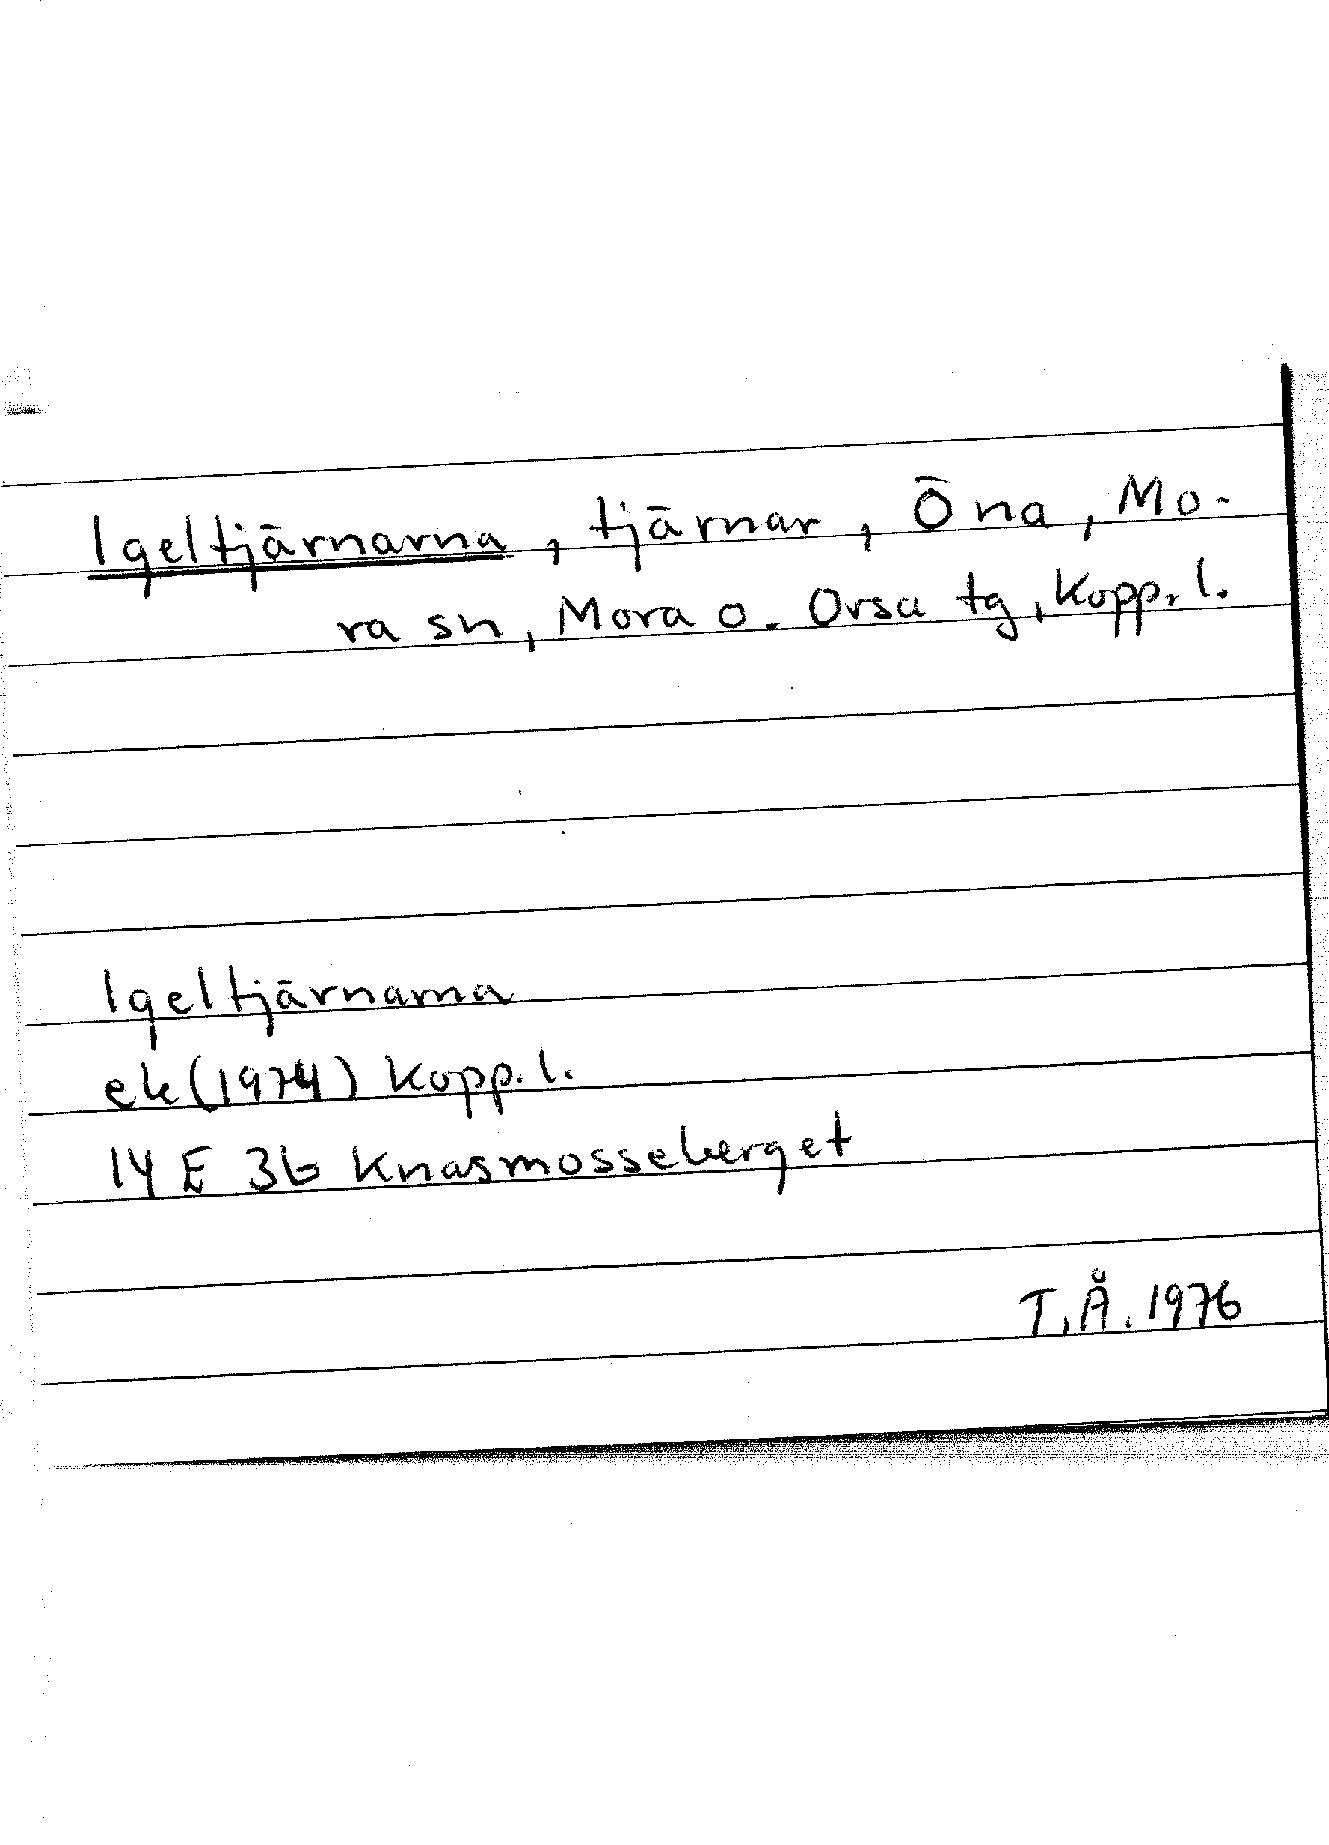 Igeltjärnarna, tjärnar, Öna, Mo-
ra sn, Mora o. Orsa tg, Kopp. l.
Igeltjärnarna
ek (1974) Kopp. l.
14 E 3b Knasmosseberget
T.Å. 1976